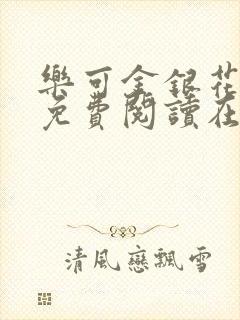 樂可金銀花
免費閱讀在
清風戀飄雪